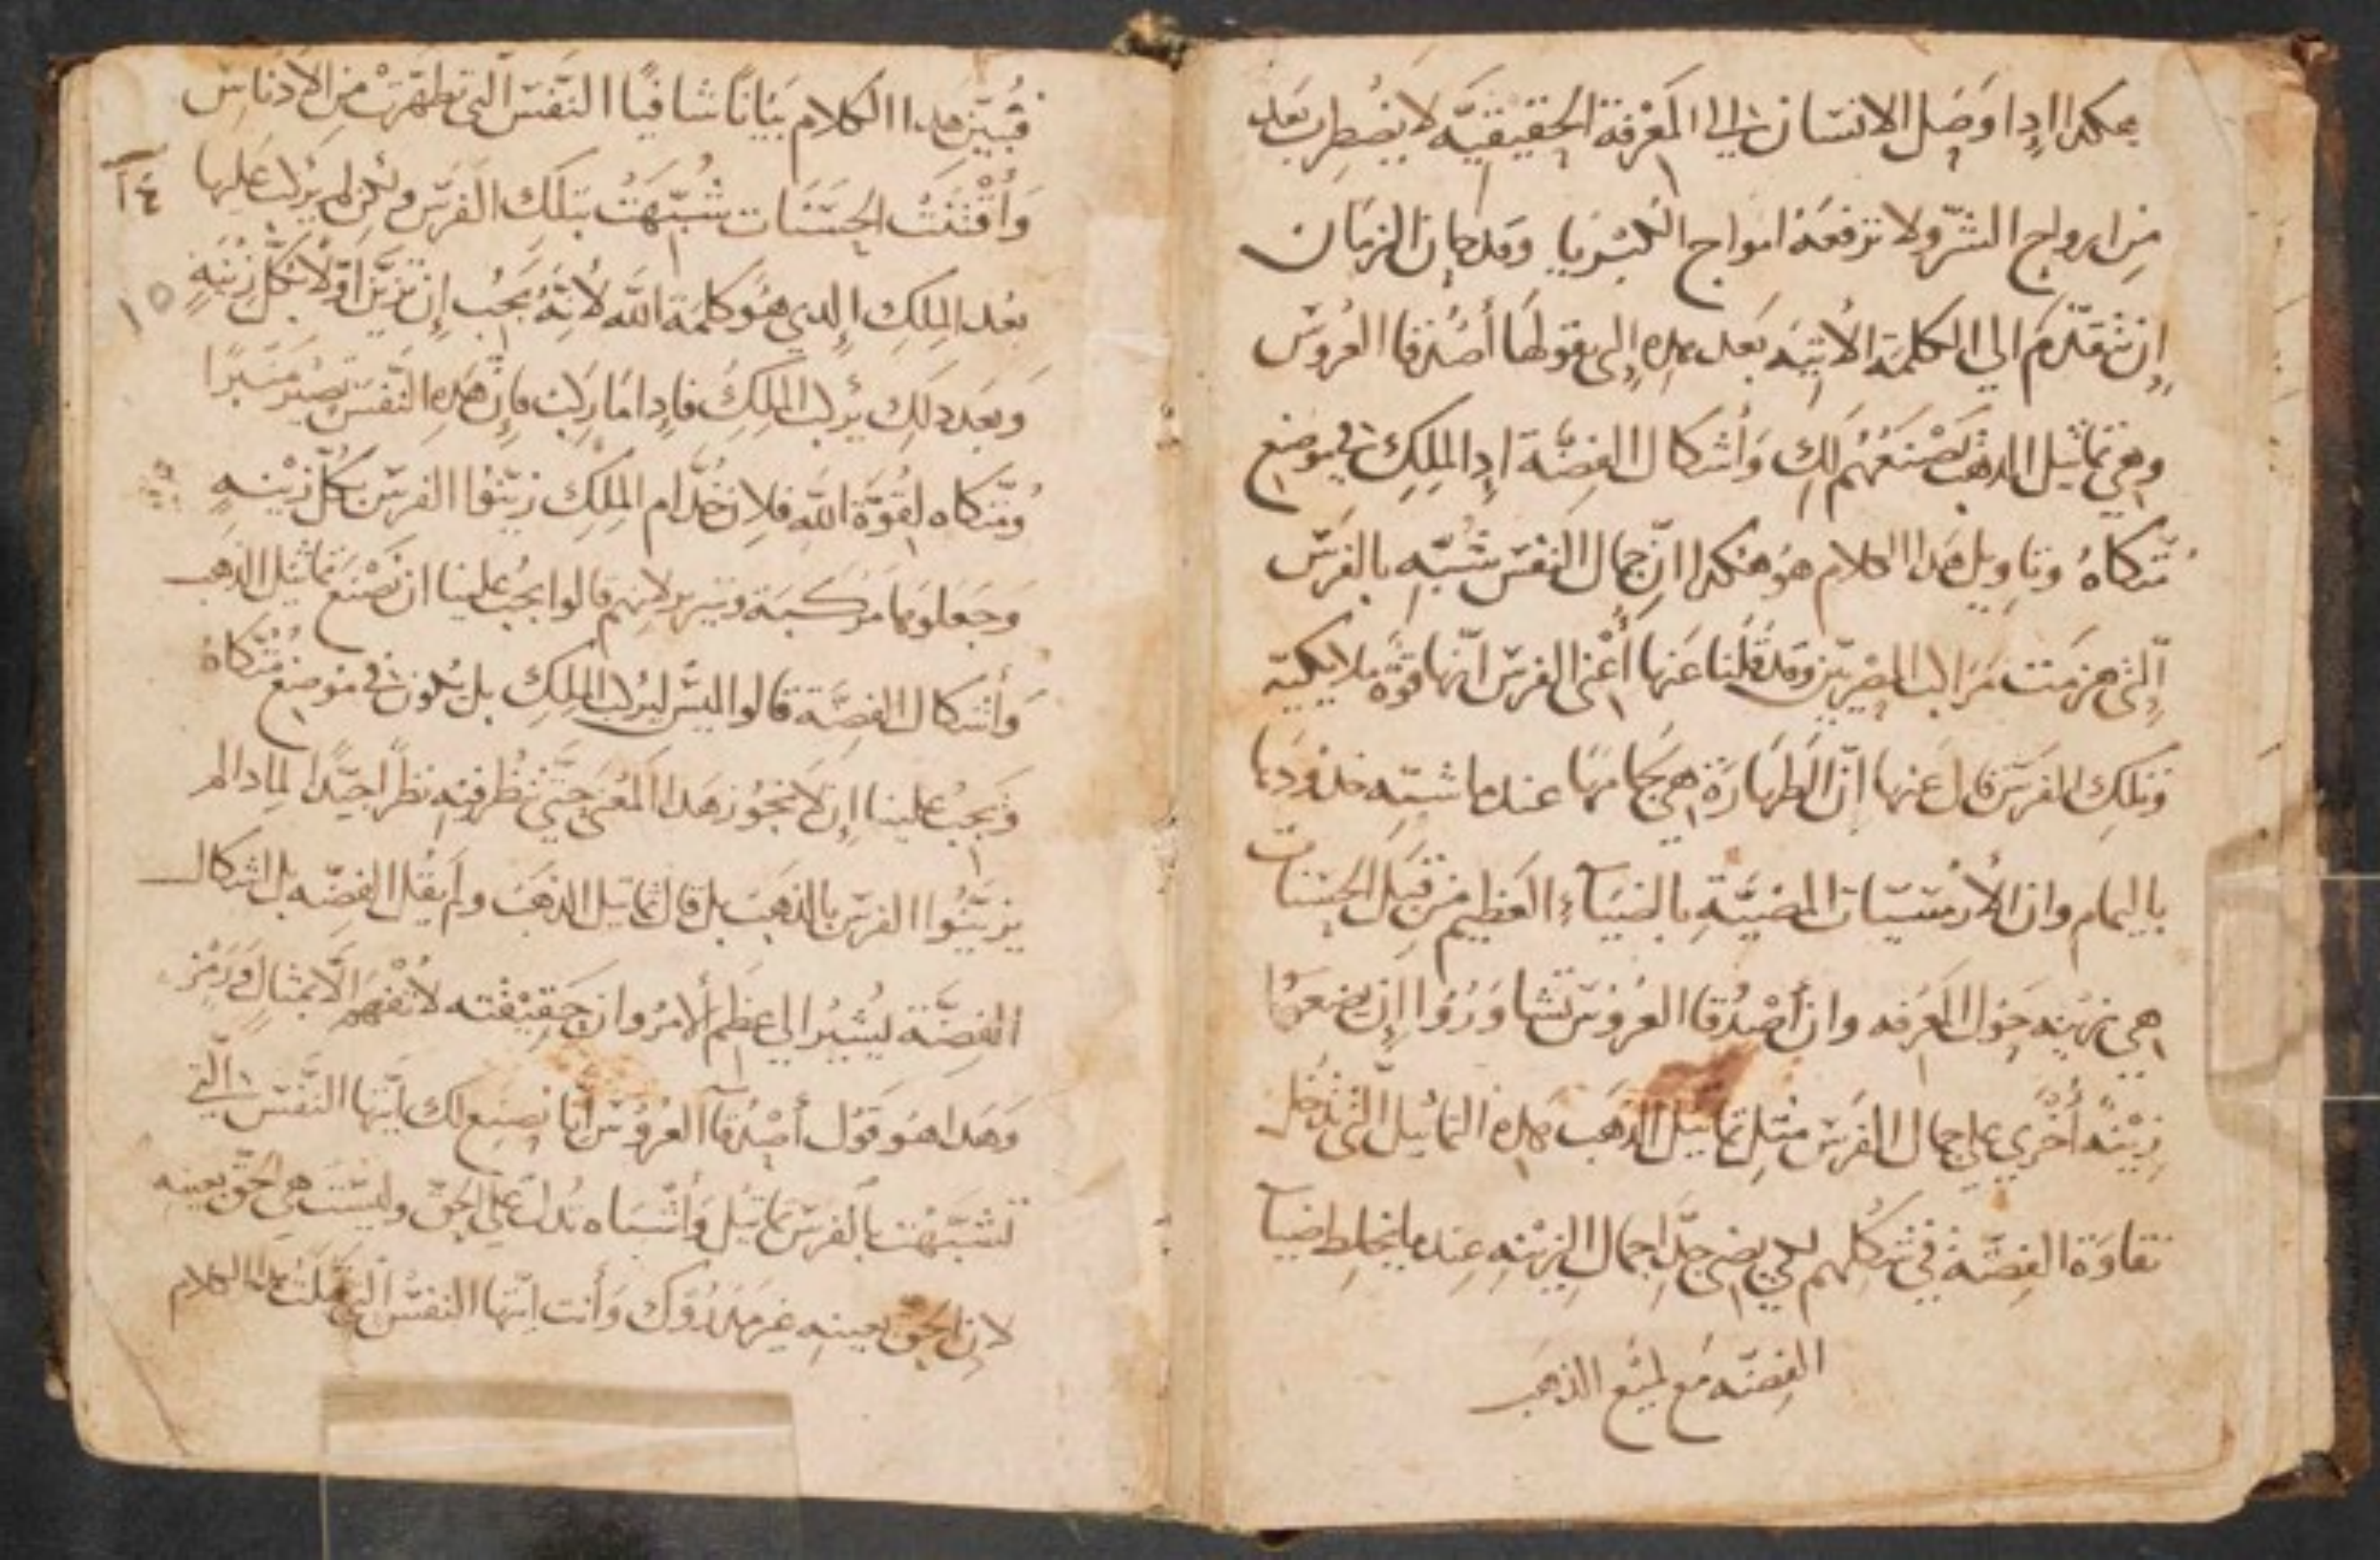 هكدا ادا وصل الانسان الي المعرفة الحقيقيّة لا يضطرب بعد
من ارواح الشرّ ولا ترفعهُ امواج الكبريا وقد حان الزمان
إن نتقدّم الي الكلمة الاتيه بعد هده الى يقولها أصدقا العروس
وهي تماثيل الدهب نصنعهُم لكِ وَأشكال الفضّة ادا الملك في موضع
مُتّكاهُ وتاويل هدا الكلام هو هكدا انّ جمال النفس شُبّه بالفرس
الّتى هزمت مراكب المصريّين وقد قُلنا عنها أعْنى الفرس انّها قوّة ملايكيّة
وتلك الفرس قال عنها انّ الطهارة هي لجامها عندما شبّه خدودها
باليمام وان الارمسيات المضيّة بالضيآء العظيم من قبل الحسنات
هي زينه حول المعرفه وان أصْدقا العروس تشاورُوا إن يضعوا
زيْنةً أخْري على جمال الفرس مثل تماثيل الدهب هده التماثيل الّتى تدخل
نقاوة الفضّة في شكلهم لكي يضى جدّا جمال الزينه عندما يختلط ضيآ
الفضّه مع لميْع الدهب
فبّين هدا الكلام بيَانًا شافيًا النّفس الّتى تطهّرت من الادناس
وَاقْتنتْ الحسَنات شُبّهَتْ بتلك الفرس ولكن لم يركب عليها
بعد الملك إلدي هُو كلمة الله لانّهُ يجب إن تزيّن اوّلاً بكلّ زينهٍ
وَبعد دلك يركب الملك فادا ما ركب فإن هده النّفس تصير منبرًا
ومُتّكاه لقوّة الله فلان خدّام الملك زيّنوا الفرس بكلّ زيْنهٍ
وَجعلوها مركبة وسرير لانهم قالوا يجب علينا ان نصْنع تماثيل الدهب
وَأشكال الفضّة قالوا ليس ليركب الملك بل يكون في موضع مُتّكاهُ
وَيجبُ علينا إن لا نجوُز هدا المعنى حتّي ننظُر فيه نظرًا جيّدًا لمادا لم
يزيّنُوا الفرس بالدهب بل قال تماثيل الدهب ولم يقل الفضّه بل اشكال
الفضّة ليُشير الي عظم ألامر وان حقيْقته لا تفهم الّا بمثال وَرمْز
وَهدا هُو قول أصْدقآ العروس انّا نصنع لك ايّتها النّفس الّتي
تشبّهت بالفرس تماثيل وَأشْباه تُدلّ علي الحقّ وليست هي الحقّ بعينه
لان الحقّ بعينه غير مَدرُوك وَأنت ايّتها النفس الّتي قبلت هدا الكلام